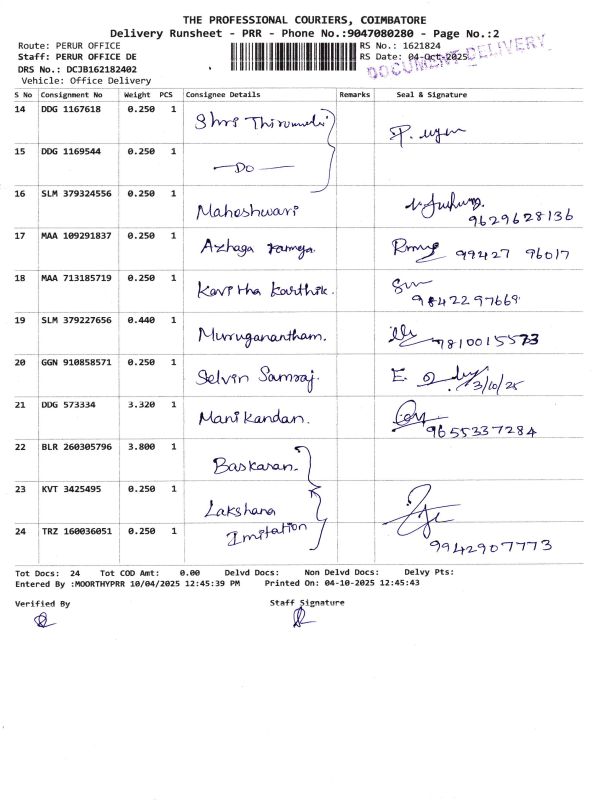 THE PROFESSIONAL COURIERS, COIMBATORE
Delivery Runsheet - PRR - Phone No.:9047080280 - Page No.:2
Route: PERUR OFFICE
RS No.: 1621824
Staff: PERUR OFFICE DE
RS Date: 04-Oct-2025
DOCUMENT DELIVERY
DRS No.: DCJB162182402
Vehicle: Office Delivery
S No Consignment No Weight PCS Consignee Details Remarks Seal & Signature
14 DDG 1167618 0.250 1 Shri
15 DDG 1169544 0.250 1 —Do—
16 SLM 379324556 0.250 1 Maheshwari 9629628136
17 MAA 109291837 0.250 1 Azhaga ramya. 99427 96017
18 MAA 713185719 0.250 1 Kavitha Karthik. 9842297669
19 SLM 379227656 0.440 1 Murruganantham. 9810015573
20 GGN 910858571 0.250 1 Selvin Samraj. E. 3/10/25
21 DDG 573334 3.320 1 Manikandan. 9655337284
22 BLR 260305796 3.800 1 Baskaran.
23 KVT 3425495 0.250 1 Lakshana
24 TRZ 160036051 0.250 1 Imitation 9942907773
Tot Docs: 24 Tot COD Amt: 0.00 Delvd Docs: Non Delvd Docs: Delvy Pts:
Entered By :MOORTHYPRR 10/04/2025 12:45:39 PM Printed On: 04-10-2025 12:45:43
Verified By Staff Signature